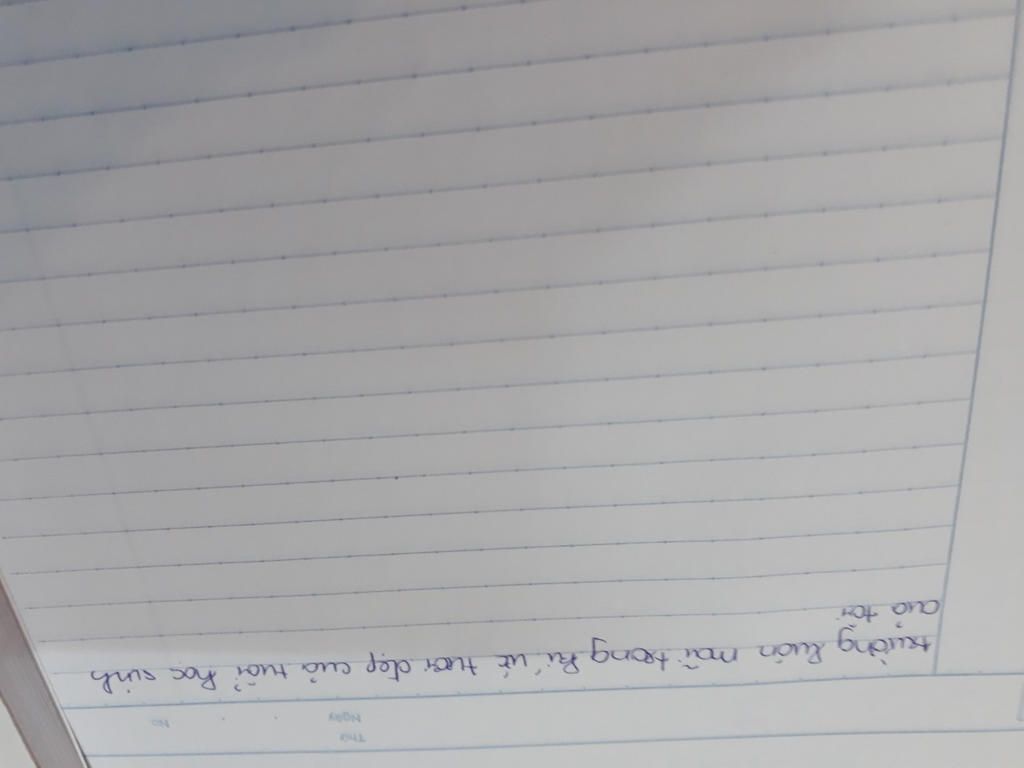 Thứ
Ngày No
trường luôn mãi trong kí ức tươi đẹp của tuổi học sinh
của tôi